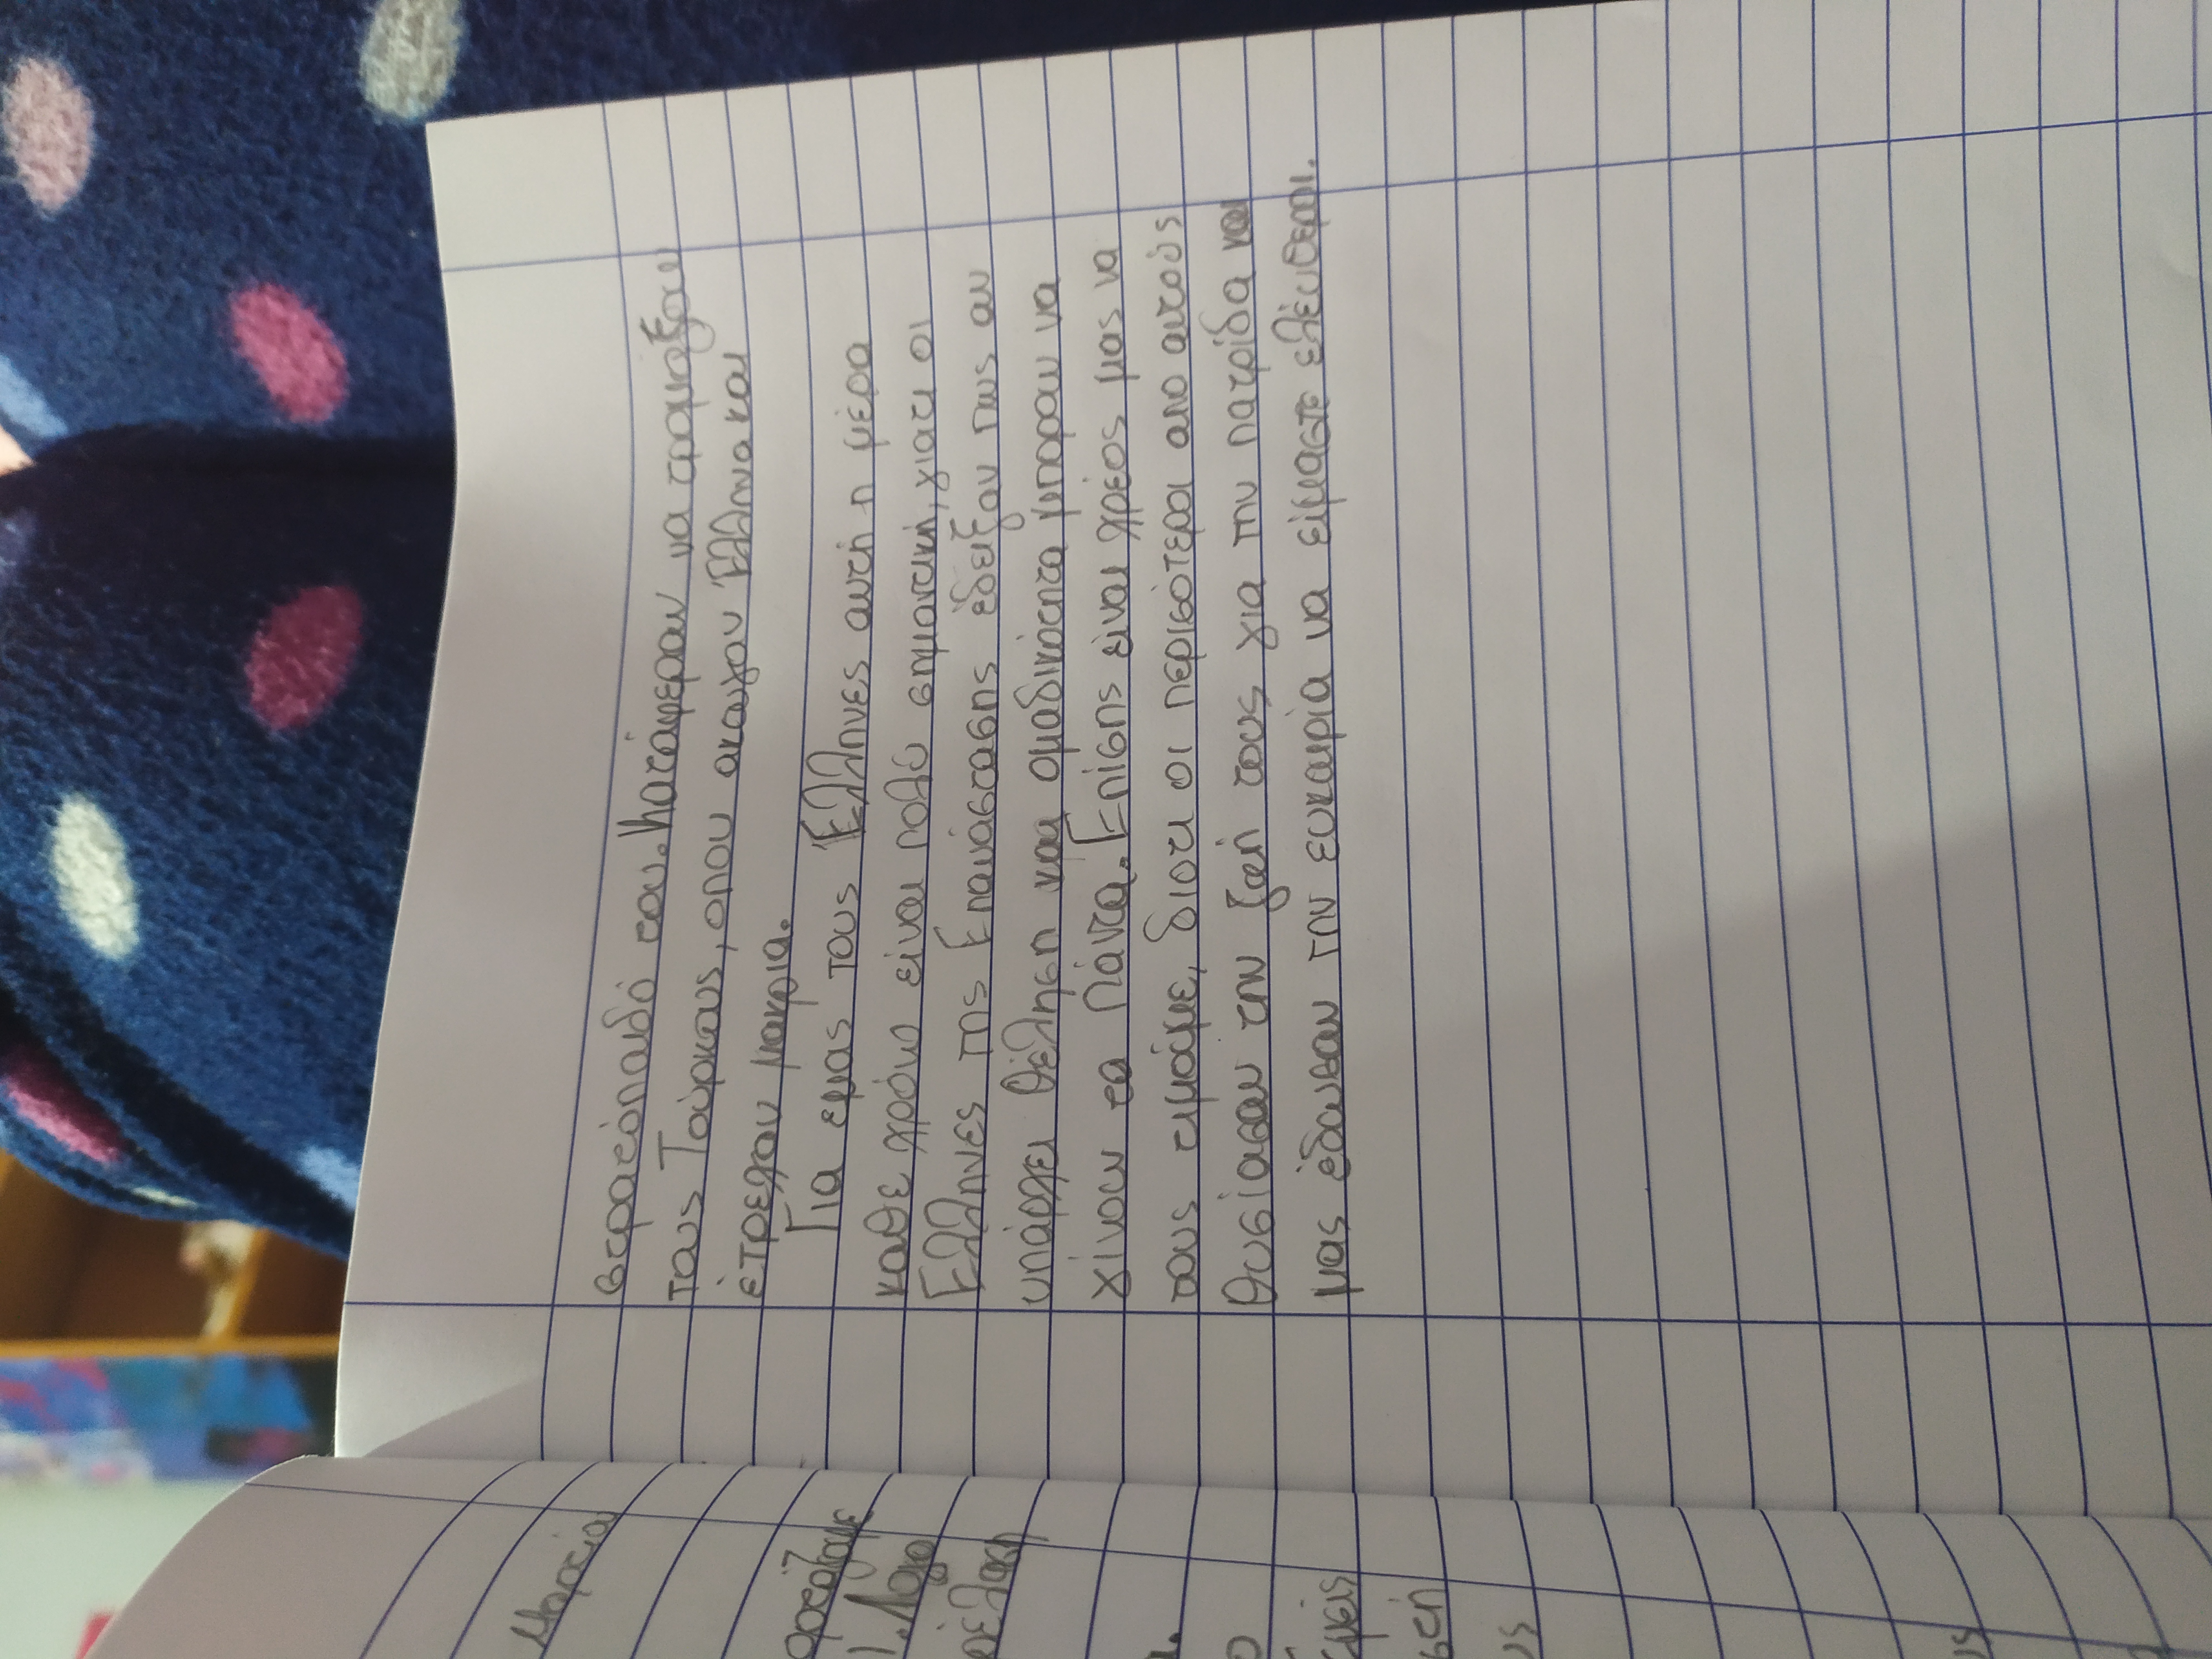 στρατόπαιδό του. Κατάφεραν να τρομάξουν
τους Τούρκους, οπου ακουγαν Έλληνα και
έτρεχαν μακρια.
Για εμας τους Έλληνες αυτή η μέρα
καθε χρόνο είναι πολύ σημαντική, γιατι οι
Έλληνες της Επανάστασης έδειξαν πως αν
υπάρχει θέληση και ομαδικότητα μπορουν να
γίνουν τα πάντα. Επίσης είναι χρέος μας να
τους τιμάμε, διοτι οι περισότεροι απο αυτούς
θυσίασαν την ζωή τους για την πατρίδα και
μας έδωσαν την ευκαιρία να είμαστε ελέυθεροι.
Μαρτίου